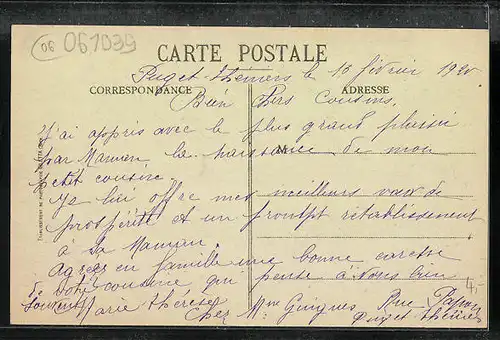 06 061039
CARTE POSTALE
Puget-Théniers le 10 février 1920
CORRESPONDANCE
ADRESSE
Bien Chers Cousins,
J'ai appris avec le plus grand plaisir
par Maman la naissance de mon
M
petit cousin.
Je lui offre mes meilleurs vœux de
prospérité et un prompt rétablissement
à sa Maman.
Agréez en famille une bonne caresse
de votre cousine qui pense à vous bien
souvent Marie Thérèse
4,-
chez Mme Guigues Rue Papon
Puget-Théniers